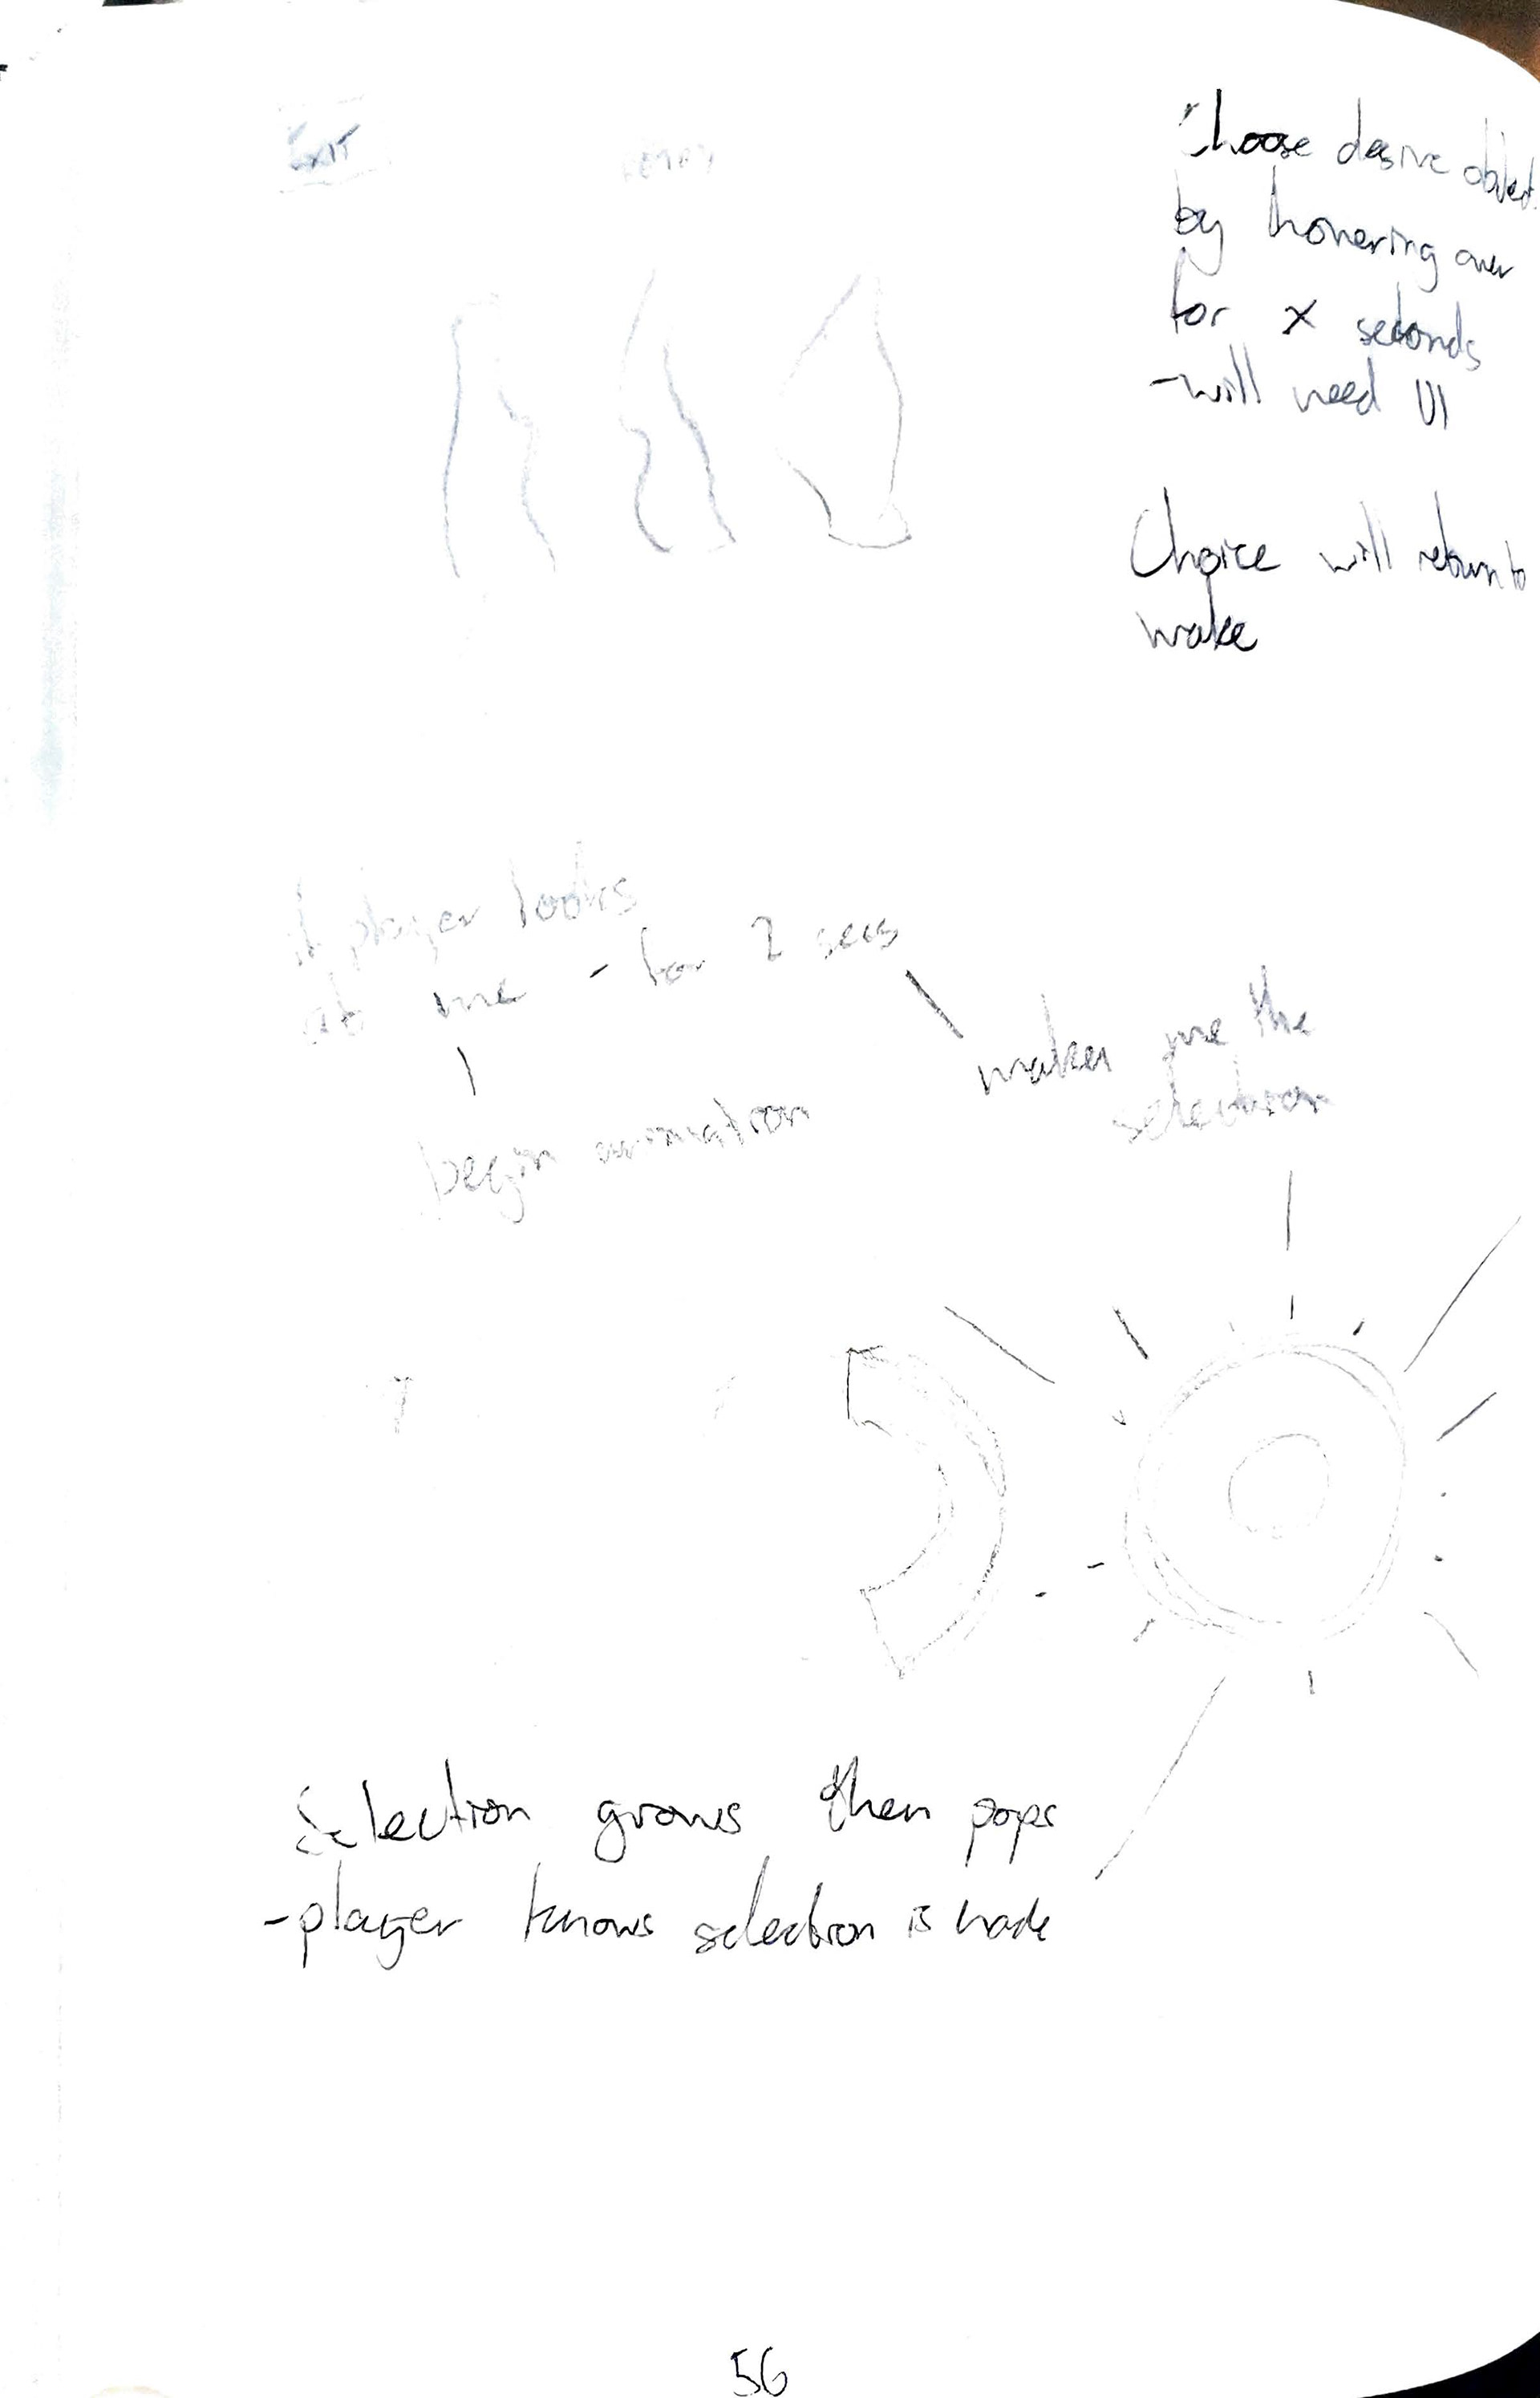 EXIT
RETRY
Choose desire object
by hovering over
for x seconds
- will need UI
Choice will return to
wake
if player looks
at me - for 2 secs
makes me the
selection
begin animation
Selection grows then pops
- player knows selection is made
56